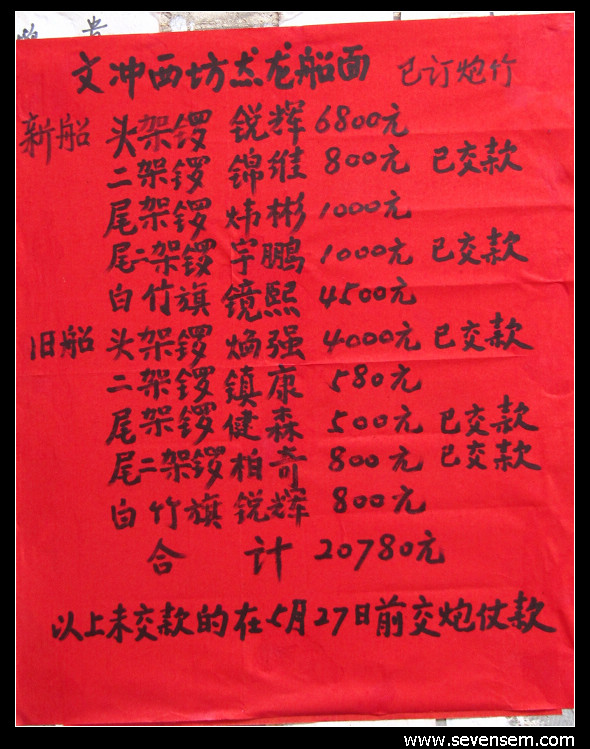 文冲西坊点龙船面 已订炮竹
新船 头架锣 锐辉 6800元
二架锣 锦维 800元 已交款
尾架锣 炜彬 1000元
尾二架锣 宇鹏 1000元 已交款
白竹旗 镜熙 4500元
旧船 头架锣 焕强 4000元 已交款
二架锣 镇康 580元
尾架锣 健森 500元 已交款
尾二架锣 柏奇 800元 已交款
白竹旗 锐辉 800元
合计 20780元
以上未交款的在5月27日前交炮仗款
www.sevensem.com